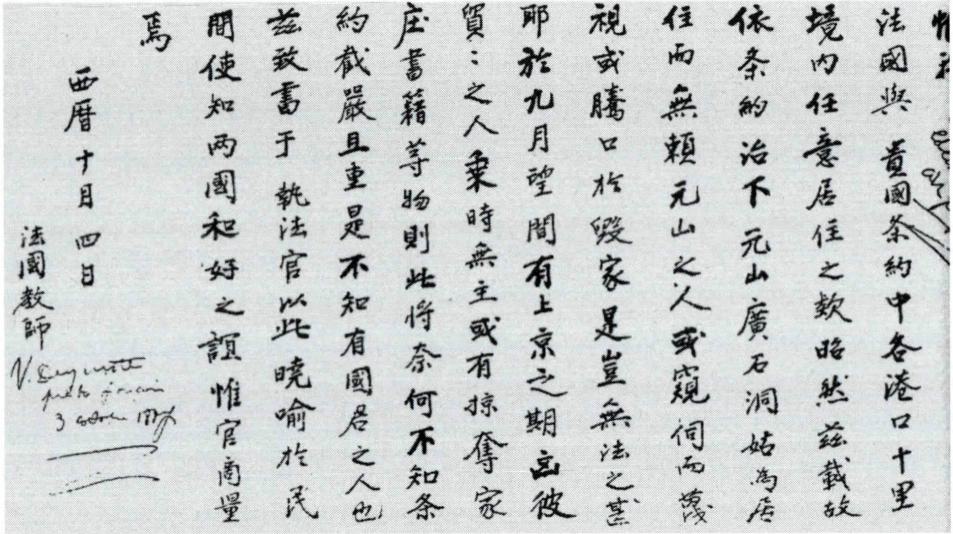 法國與 貴國条約中各港口十里
境内任意居住之欵昭然玆載故
依条約治下元山廣石洞姑爲居
住而無賴元山之人或窺伺而蔑
視或騰口於毀家是豈無法之甚
耶於九月望間有上京之期而彼
貿〻之人乗時無主或有掠奪家
庄書籍等物則此將奈何不知条
約截嚴且重是不知有國君之人也
玆致書于執法官以此曉喻於民
間使知兩國和好之誼惟官啇量
焉
西曆十月四日
法國教師
3 octobre